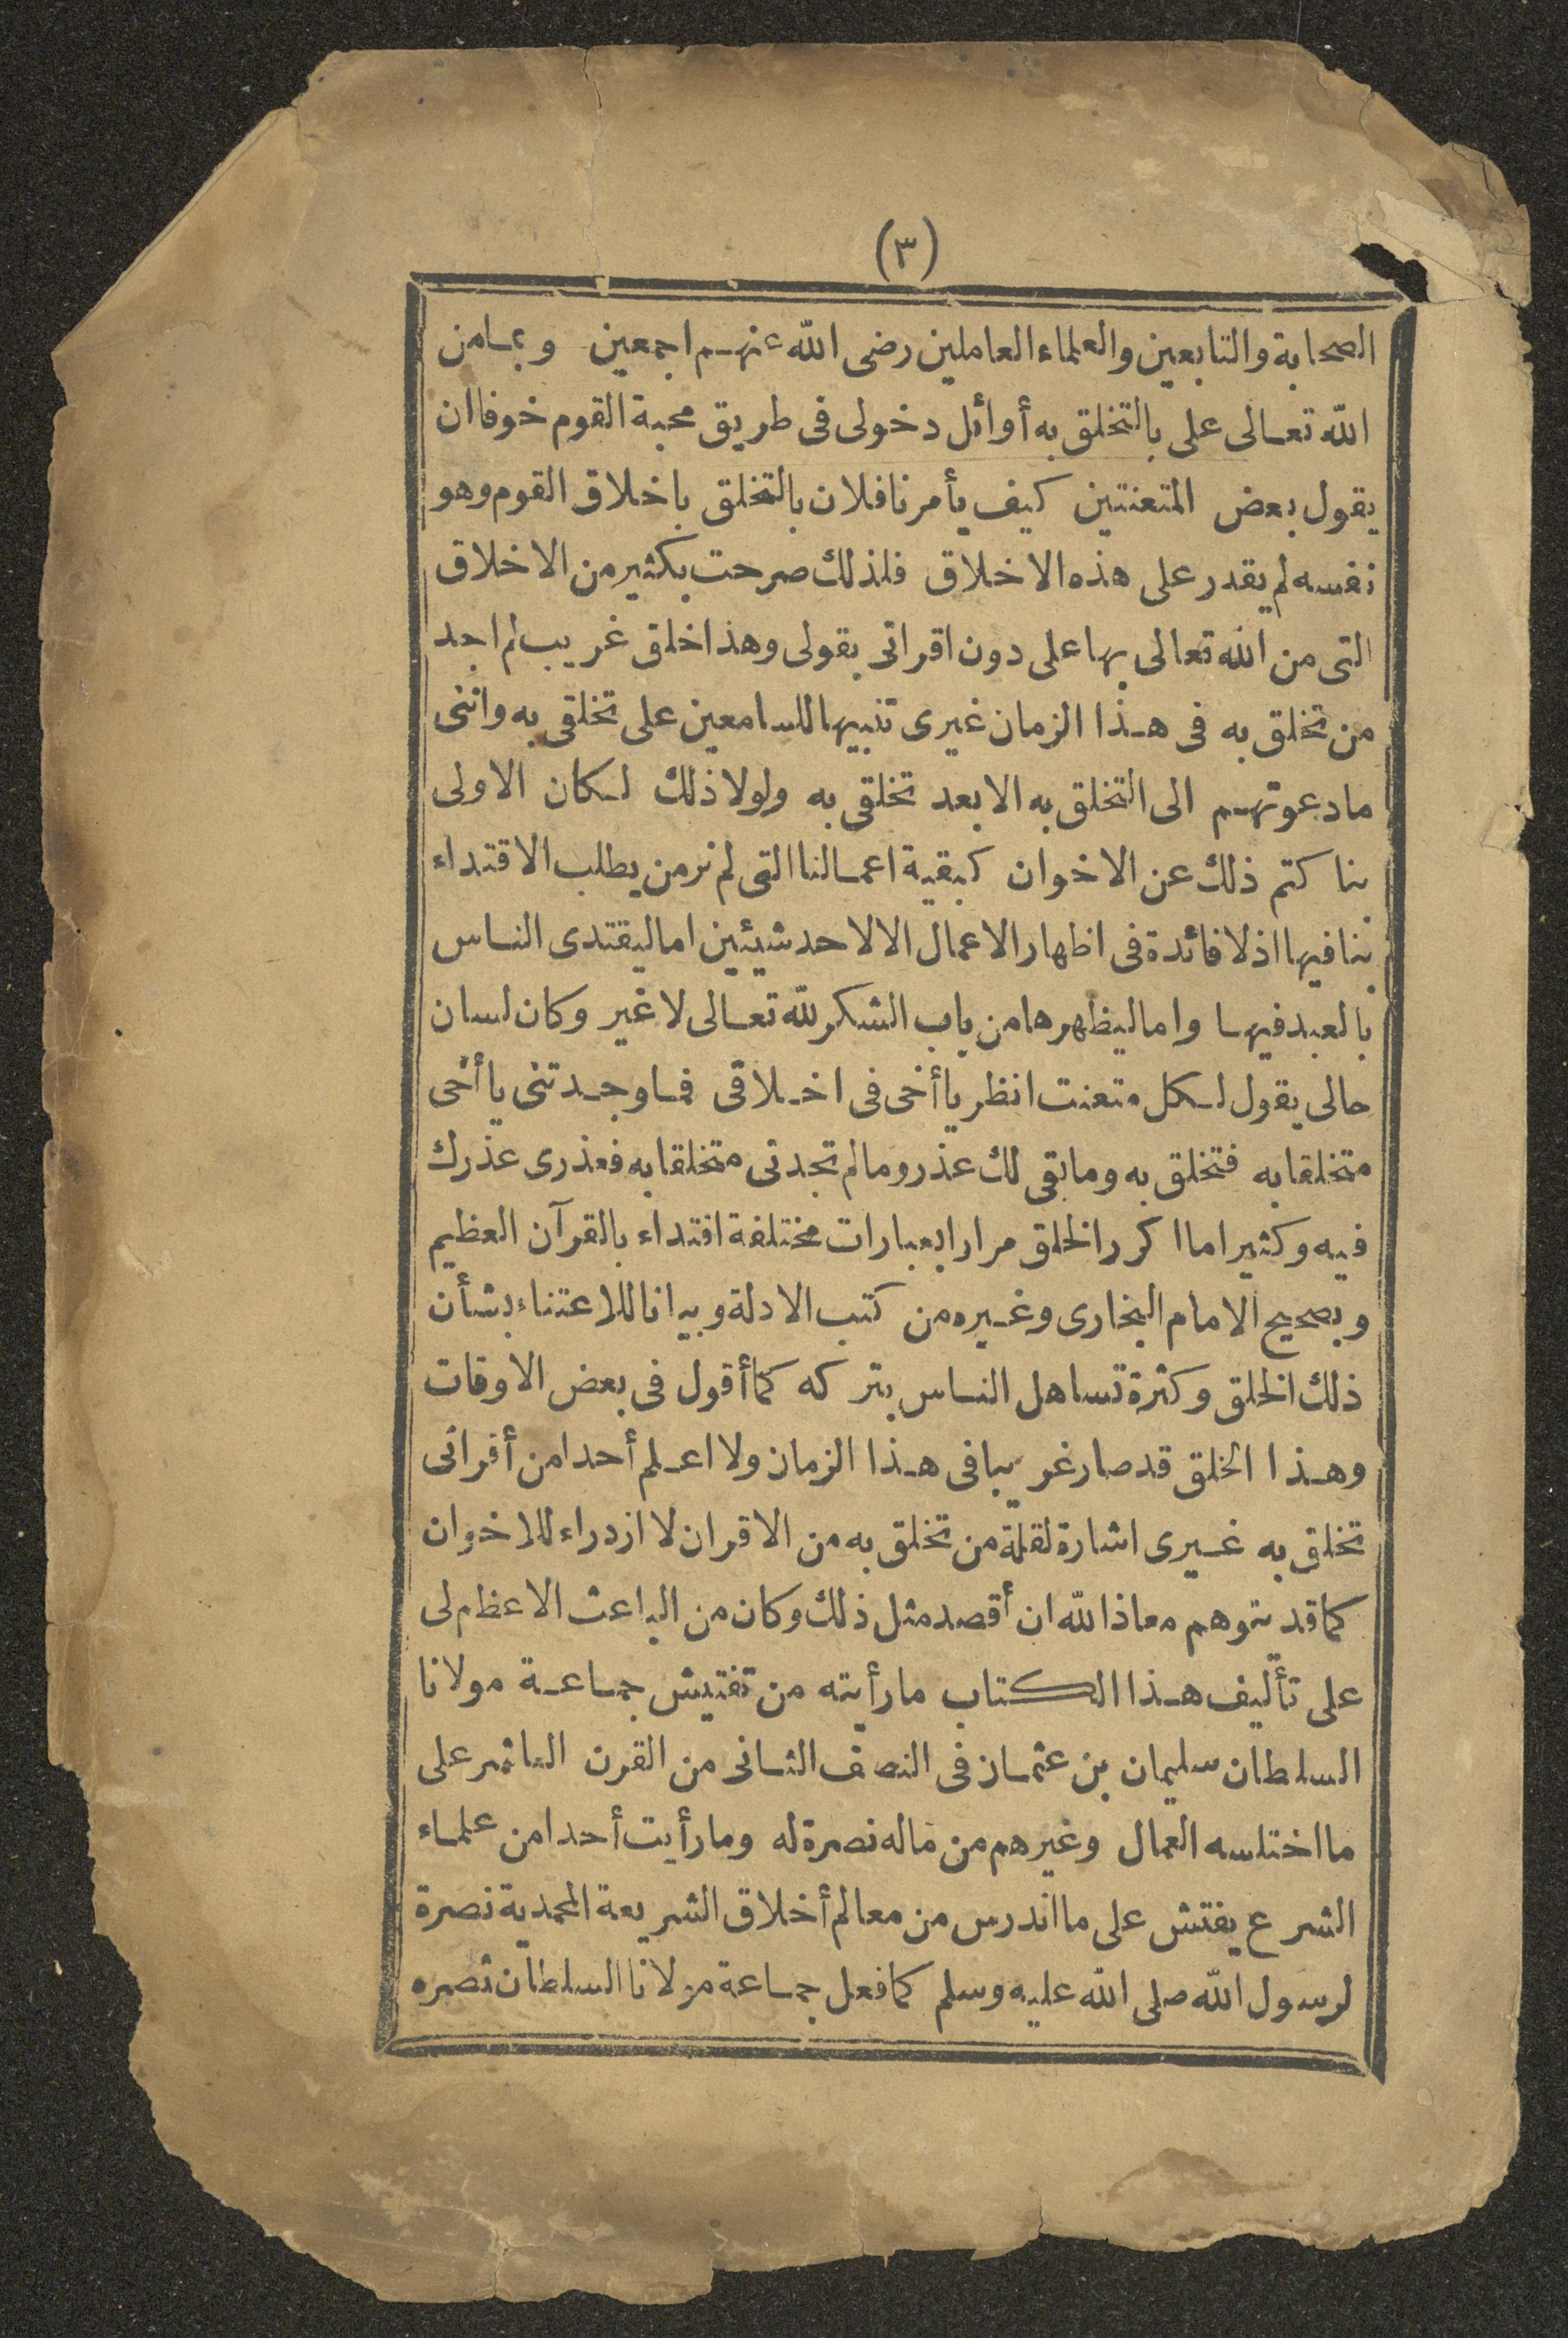 (٣)
الصحابة والتابعين والعلماء العاملين رضى الله عنهم اجمعين وبمامن
الله تعالى على بالتخلق به أوائل دخولى فى طريق محبة القوم خوفا ان
يقول بعض المتعنتين كيف يأمرنا فلان بالتخلق باخلاق القوم وهو
نفسه لم يقدر على هذه الاخلاق فلذلك صرحت بكثير من الاخلاق
التى من الله تعالى بها على دون اقرانى بقولى وهذا خلق غريب لم اجد
من تخلق به فى هذا الزمان غيرى تنبيها للسامعين على تخلقى به وانى
مادعوتهم الى التخلق به الابعد تخلقى به ولولا ذلك لكان الاولى
بنا كتم ذلك عن الاخوان كبقية اعمالنا التى لم نر من يطلب الاقتداء
بنافيها اذلا فائدة فى اظهار الاعمال الالاحد شيئين اما ليقتدى الناس
بالعبد فيها واما ليظهرها من باب الشكر لله تعالى لا غير وكان لسان
حالى يقول لكل متعنت انظر يا أخى فى اخلاقى فما وجدتنى يا أخى
متخلقا به فتخلق به وما بقى لك عذر ومالم تجدنى متخلقا به فعذرى عذرك
فيه وكثيرا ما اكرر الخلق مرارا بعبارات مختلفة اقتداء بالقرآن العظيم
وبصحيح الامام البخارى وغيره من كتب الادلة وبيانا للاعتناء بشأن
ذلك الخلق وكثرة تساهل الناس بتركه كما أقول فى بعض الاوقات
وهذا الخلق قد صار غريبا فى هذا الزمان ولا اعلم أحدا من أقرانى
تخلق به غيرى اشارة لقلة من تخلق به من الاقران لا ازدراء للاخوان
كما قد يتوهم معاذ الله ان أقصد مثل ذلك وكان من الباعث الاعظم لى
على تأليف هذا الكتاب مارأيته من تفتيش جماعة مولانا
السلطان سليمان بن عثمان فى النصف الثانى من القرن العاشر على
ما اختلسه العمال وغيرهم من ماله نصرة له ومارأيت أحدا من علماء
الشرع يفتش على ما اندرس من معالم أخلاق الشريعة المحمدية نصرة
لرسول الله صلى الله عليه وسلم كما فعل جماعة مولانا السلطان نصره